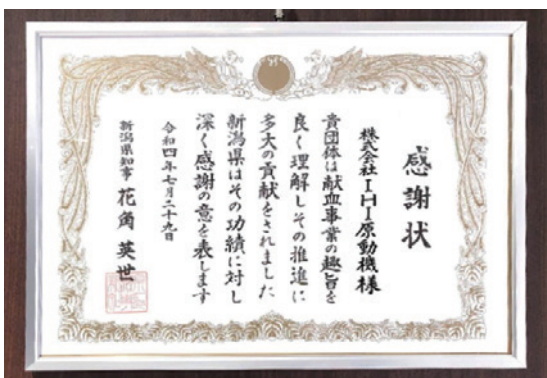 感謝状
株式会社IHI原動機様
貴団体は献血事業の趣旨を
良く理解しその推進に
多大の貢献をされました
新潟県はその功績に対し
深く感謝の意を表します
令和四年七月二十九日
新潟県知事 花角英世